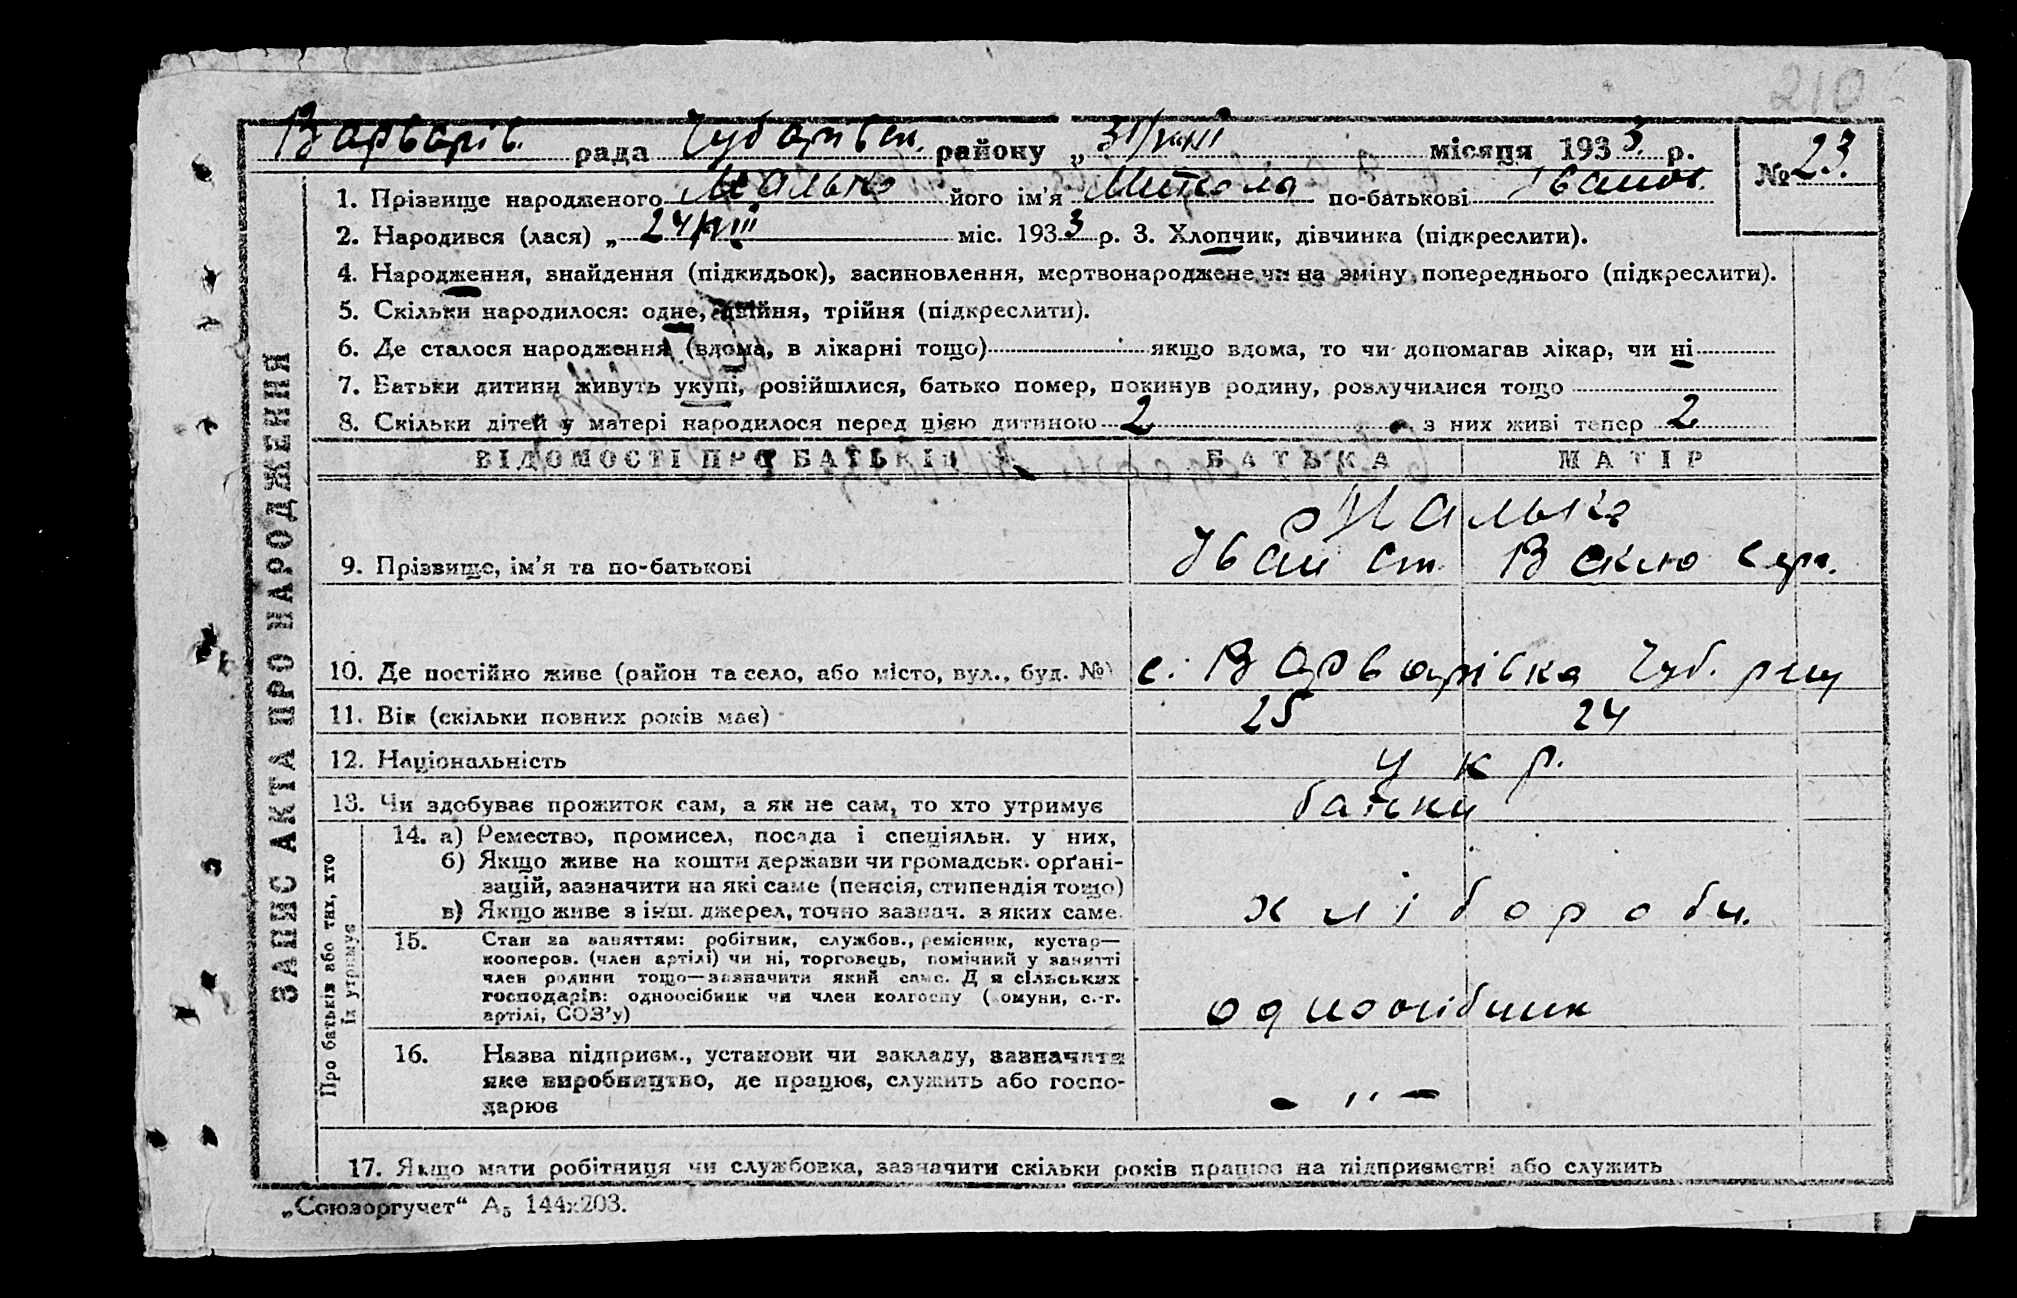 210
Варварів. рада Чубарівск. району „ 31/VIII місяця 1933 р.
№ 23.
1. Прізвище народженого Малько його ім'я Микола по-батькові Іванов.
2. Народився (лася) „ 24/VIII міс. 1933 р. 3. Хлопчик, дівчинка (підкреслити).
4. Народження, знайдення (підкидьок), засиновлення, мертвонароджене чи на зміну попереднього (підкреслити).
5. Скільки народилося: одне, двійня, трійня (підкреслити).
6. Де сталося народження (вдома, в лікарні тощо) якщо вдома, то чи допомагав лікар, чи ні
7. Батьки дитини живуть укупі, розійшлися, батько помер, покинув родину, розлучилися тощо
8. Скільки дітей у матері народилося перед цією дитиною 2 з них живі тепер 2
ВІДОМОСТІ ПРО БАТЬКІВ БАТЬКА МАТІР
Малько
9. Прізвище, ім'я та по-батькові Іван Ст.
10. Де постійно живе (район та село, або місто, вул., буд. №) с. Варварівка Чуб. р-ну
11. Вік (скільки повних років має) 25 24
12. Національність укр.
13. Чи здобуває прожиток сам, а як не сам, то хто утримує батьки
ЗАПИС АКТА ПРО НАРОДЖЕННЯ
Про батьків або тих, хто
їх утримує
14. а) Ремество, промисел, посада і спеціяльн. у них,
б) Якщо живе на кошти держави чи громадськ. орґані-
зацій, зазначити на які саме (пенсія, стипендія тощо)
в) Якщо живе з інш. джерел, точно зазнач. з яких саме. хлібороби.
15. Стан за заняттям: робітник, службов., ремісник, кустар—
кооперов. (член артілі) чи ні, торговець, помічний у занятті
член родини тощо—зазначити який саме. Для сільських
господарів: одноосібник чи член колгоспу (комуни, с.-г.
артілі, СОЗ'у) одноосібник
16. Назва підприєм., установи чи закладу, зазначити
яке виробництво, де працює, служить або госпо-
дарює - ,, -
17. Якщо мати робітниця чи службовка, зазначити скільки років працює на підприємстві або служить
„Союзоргучет“ А₅ 144х203.